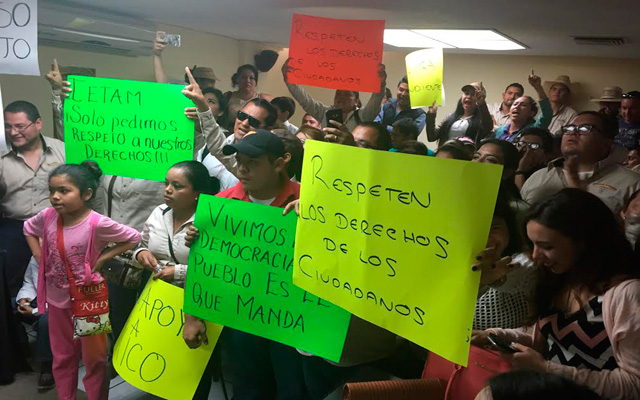 SO
JO
RESPETEN
LOS DERECHOS
DE LOS
CIUDADANOS
IETAM
¡SOLO PEDIMOS
RESPETO A NUESTROS
DERECHOS!!!
VIVIMOS
DEMOCRACIA
PUEBLO ES EL
QUE MANDA
RESPETEN
LOS DERECHOS
DE LOS
CIUDADANOS
APOYO
A
ICO
Kitty